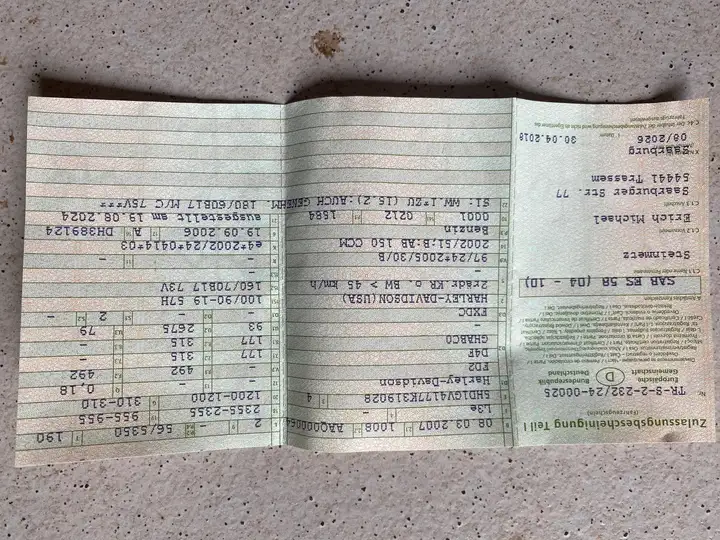 Zulassungsbescheinigung Teil I
(Fahrzeugschein)
Nr. TR-S-2-232/24-00025
Europäische
Gemeinschaft
D
Bundesrepublik
Deutschland
SAB ES 58 (04 - 10)
C.1.1 Name oder Firmenname
Steinmetz
C.1.2 Vorname(n)
Erich Michael
C.1.3 Anschrift
Saarburger Str. 77
54441 Trassem
08/2026
Saarburg
30.04.2018
08.03.2007 1008 AAQ000006
L3e
5HD1GV4177K319028 4
Harley-Davidson
FD2
D4F
GWABCO
-
FXDC
HARLEY-DAVIDSON(USA)
2rädr.KR o. BW > 45 km/h
-
97/24*2005/30/B
2002/51:B:AB 150 CCM
Benzin
0001 0212 1584
2 - 56/5350 190
2355-2355 955-955
1200-1200 310-310
- - 0,18
- 492 492
177 315 315
177 315 -
93 2675 79
- - 2 -
100/90-19 57H
160/70B17 73V
-
- -
e4*2002/24*0414*03
19.09.2006 A DH389124
ausgestellt am 19.08.2024
S1: WW.1*ZU (15.2):AUCH GENEHM. 180/60B17 M/C 75V***